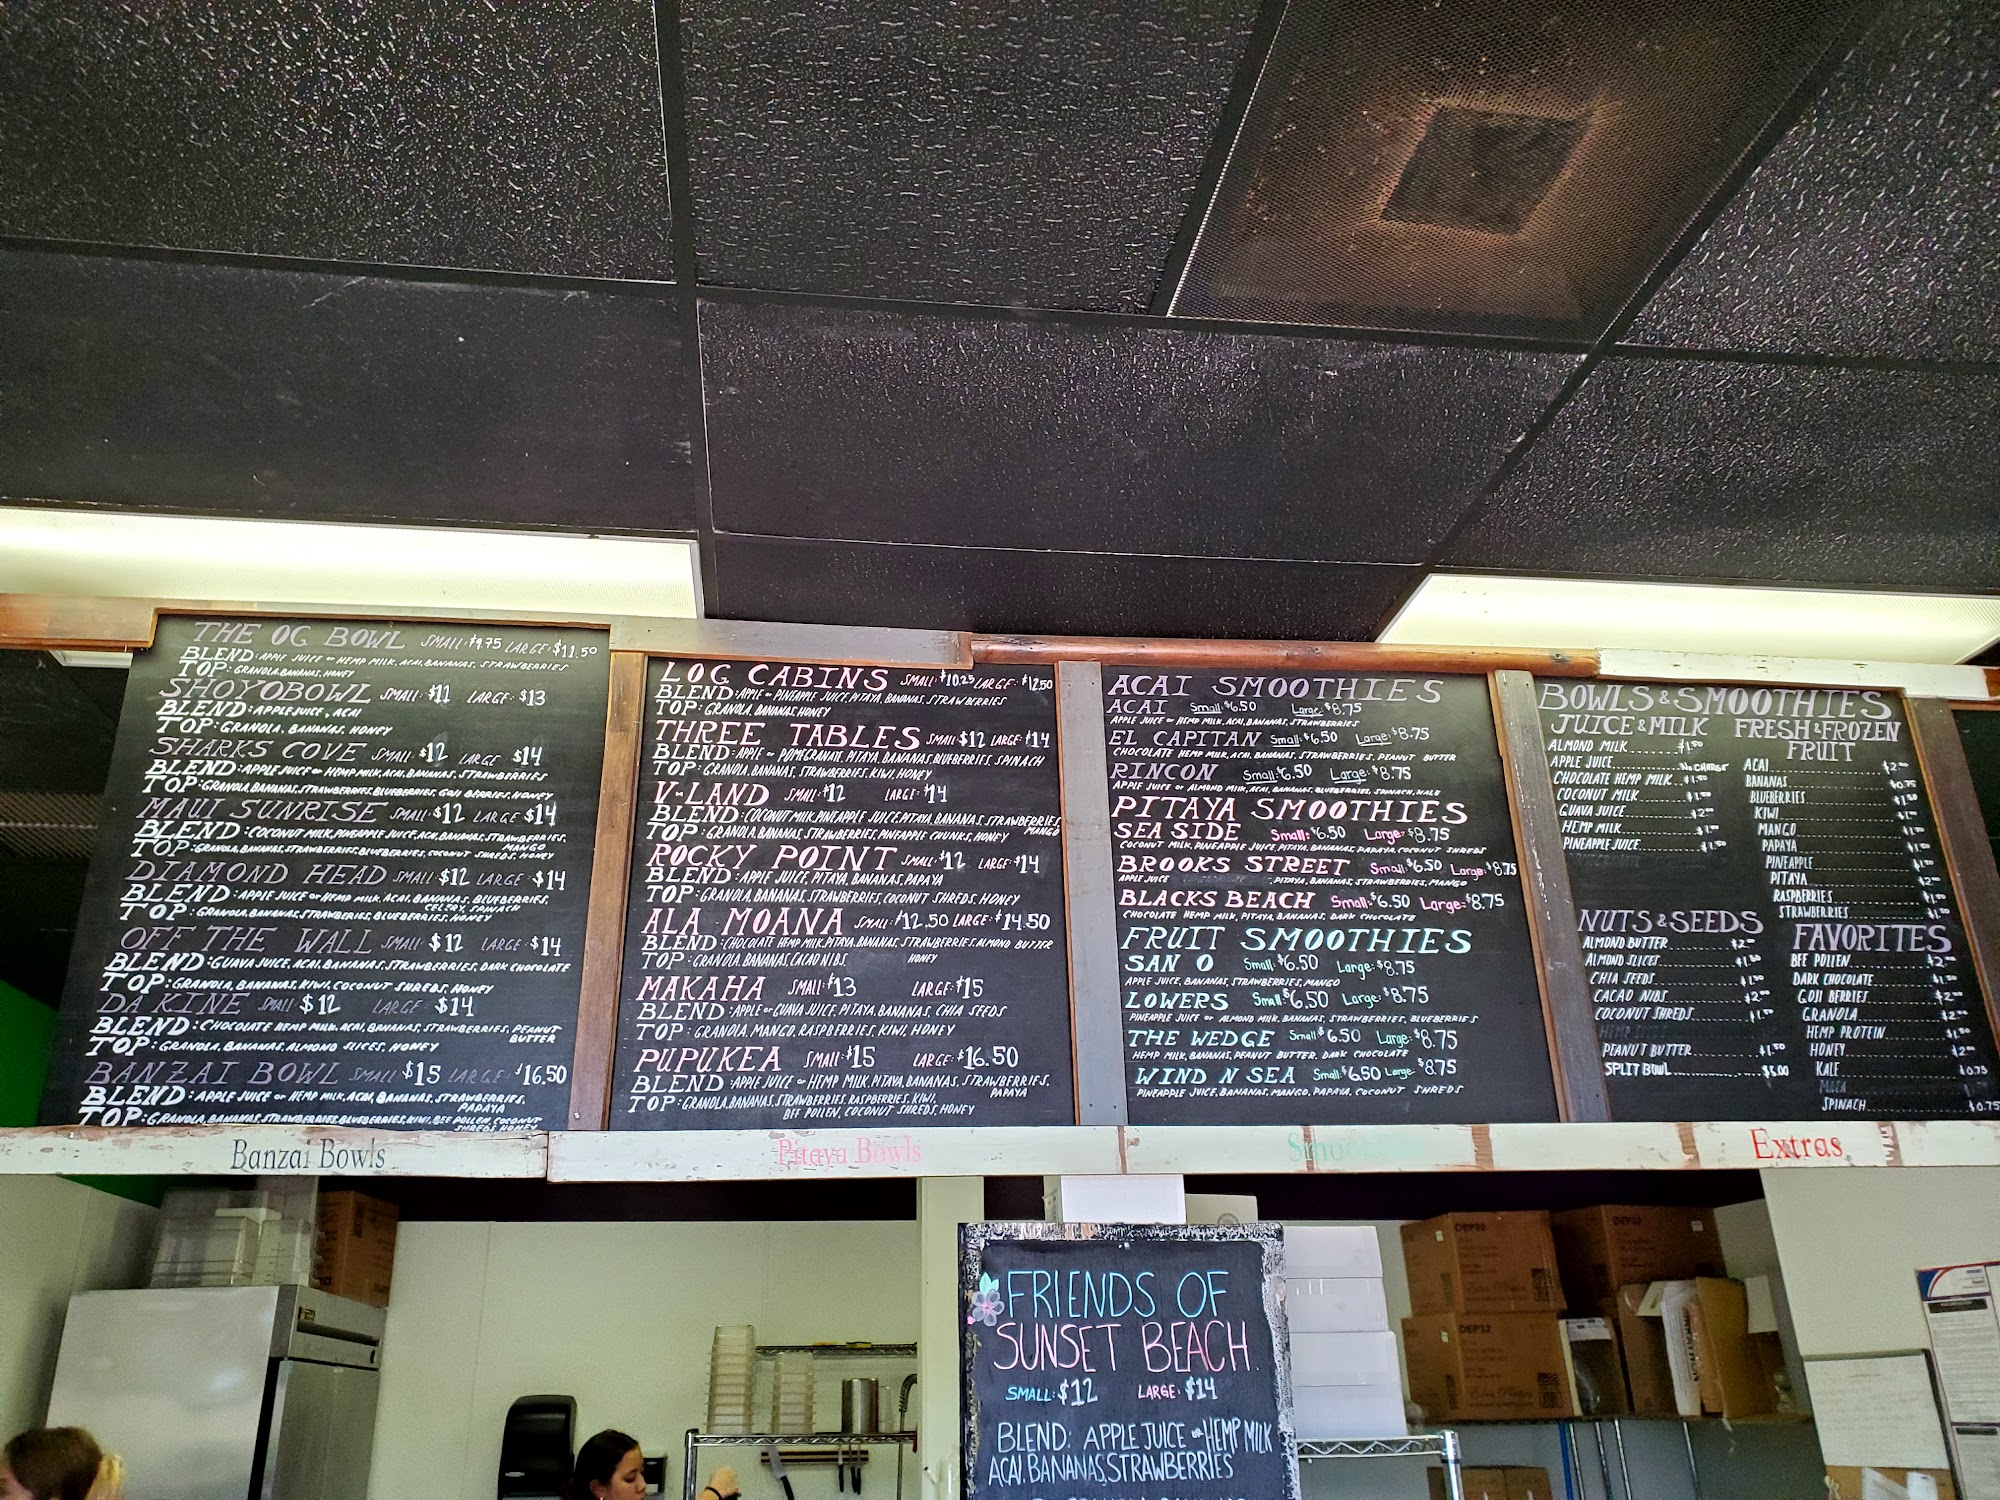 THE OG BOWL SMALL: $9.75 LARGE: $11.50
BLEND: APPLE JUICE or HEMP MILK, ACAI, BANANAS, STRAWBERRIES
TOP: GRANOLA, BANANAS, HONEY
SHOYOBOWL SMALL: $11 LARGE: $13
BLEND: APPLE JUICE, ACAI
TOP: GRANOLA, BANANAS, HONEY
SHARKS COVE SMALL: $12 LARGE $14
BLEND: APPLE JUICE or HEMP MILK, ACAI, BANANAS, STRAWBERRIES
TOP: GRANOLA, BANANAS, STRAWBERRIES, BLUEBERRIES, GOJI BERRIES, HONEY
MAUI SUNRISE SMALL: $12 LARGE $14
BLEND: COCONUT MILK, PINEAPPLE JUICE, ACAI, BANANAS, STRAWBERRIES,
MANGO
TOP: GRANOLA, BANANAS, STRAWBERRIES, BLUEBERRIES, COCONUT SHREDS, HONEY
DIAMOND HEAD SMALL: $12 LARGE: $14
BLEND: APPLE JUICE or HEMP MILK, ACAI, BANANAS, BLUEBERRIES,
CELERY, SPINACH
TOP: GRANOLA, BANANAS, STRAWBERRIES, BLUEBERRIES, HONEY
OFF THE WALL SMALL: $12 LARGE: $14
BLEND: GUAVA JUICE, ACAI, BANANAS, STRAWBERRIES, DARK CHOCOLATE
TOP: GRANOLA, BANANAS, KIWI, COCONUT SHREDS, HONEY
DA KINE SMALL $12 LARGE $14
BLEND: CHOCOLATE HEMP MILK, ACAI, BANANAS, STRAWBERRIES, PEANUT
BUTTER
TOP: GRANOLA, BANANAS, ALMOND SLICES, HONEY
BANZAI BOWL SMALL $15 LARGE $16.50
BLEND: APPLE JUICE or HEMP MILK, ACAI, BANANAS, STRAWBERRIES,
PAPAYA
TOP: GRANOLA, BANANAS, STRAWBERRIES, BLUEBERRIES, KIWI, BEE POLLEN, COCONUT
SHREDS, HONEY
Banzai Bowls
LOG CABINS SMALL: $10.25 LARGE: $12.50
BLEND: APPLE or PINEAPPLE JUICE, PITAYA, BANANAS, STRAWBERRIES
TOP: GRANOLA, BANANAS, HONEY
THREE TABLES SMALL $12 LARGE: $14
BLEND: APPLE or POMEGRANATE, PITAYA, BANANAS, BLUEBERRIES, SPINACH
TOP: GRANOLA, BANANAS, STRAWBERRIES, KIWI, HONEY
V-LAND SMALL: $12 LARGE: $14
BLEND: COCONUT MILK, PINEAPPLE JUICE, PITAYA, BANANAS, STRAWBERRIES
MANGO
TOP: GRANOLA, BANANAS, STRAWBERRIES, PINEAPPLE CHUNKS, HONEY
ROCKY POINT SMALL: $12 LARGE: $14
BLEND: APPLE JUICE, PITAYA, BANANAS, PAPAYA
TOP: GRANOLA, BANANAS, STRAWBERRIES, COCONUT SHREDS, HONEY
ALA MOANA SMALL: $12.50 LARGE: $14.50
BLEND: CHOCOLATE HEMP MILK, PITAYA, BANANAS, STRAWBERRIES, ALMOND BUTTER
TOP: GRANOLA, BANANAS, CACAO NIBS HONEY
MAKAHA SMALL: $13 LARGE: $15
BLEND: APPLE or GUAVA JUICE, PITAYA, BANANAS, CHIA SEEDS
TOP: GRANOLA, MANGO, RASPBERRIES, KIWI, HONEY
PUPUKEA SMALL: $15 LARGE: $16.50
BLEND: APPLE JUICE or HEMP MILK, PITAYA, BANANAS, STRAWBERRIES,
PAPAYA
TOP: GRANOLA, BANANAS, STRAWBERRIES, RASPBERRIES, KIWI,
BEE POLLEN, COCONUT SHREDS, HONEY
Pitaya Bowls
ACAI SMOOTHIES
ACAI Small: $6.50 Large: $8.75
APPLE JUICE or HEMP MILK, ACAI, BANANAS, STRAWBERRIES
EL CAPITAN Small: $6.50 Large: $8.75
CHOCOLATE HEMP MILK, ACAI, BANANAS, STRAWBERRIES, PEANUT BUTTER
RINCON Small: $6.50 Large: $8.75
APPLE JUICE or ALMOND MILK, ACAI, BANANAS, BLUEBERRIES, SPINACH, KALE
PITAYA SMOOTHIES
SEA SIDE Small: $6.50 Large: $8.75
COCONUT MILK, PINEAPPLE JUICE, PITAYA, BANANAS, PAPAYA, COCONUT SHREDS
BROOKS STREET Small: $6.50 Large: $8.75
APPLE JUICE PITAYA, BANANAS, STRAWBERRIES, MANGO
BLACKS BEACH Small: $6.50 Large: $8.75
CHOCOLATE HEMP MILK, PITAYA, BANANAS, DARK CHOCOLATE
FRUIT SMOOTHIES
SAN O Small: $6.50 Large: $8.75
APPLE JUICE, BANANAS, STRAWBERRIES, MANGO
LOWERS Small: $6.50 Large: $8.75
PINEAPPLE JUICE or ALMOND MILK, BANANAS, STRAWBERRIES, BLUEBERRIES
THE WEDGE Small: $6.50 Large: $8.75
HEMP MILK, BANANAS, PEANUT BUTTER, DARK CHOCOLATE
WIND N SEA Small: $6.50 Large: $8.75
PINEAPPLE JUICE, BANANAS, MANGO, PAPAYA, COCONUT SHREDS
BOWLS & SMOOTHIES
JUICE & MILK
ALMOND MILK........$1.50
APPLE JUICE........No CHARGE
CHOCOLATE HEMP MILK...$1.50
COCONUT MILK
GUAVA JUICE
HEMP MILK
PINEAPPLE JUICE
NUTS & SEEDS
ALMOND BUTTER
ALMOND SLICES
CHIA SEEDS
CACAO NIBS
COCONUT SHREDS
PEANUT BUTTER........$1.50
SPLIT BOWL........$6.00
FRESH & FROZEN
FRUIT
ACAI
BANANAS........$0.75
BLUEBERRIES
KIWI
MANGO
PAPAYA
PINEAPPLE
PITAYA
RASPBERRIES
STRAWBERRIES
FAVORITES
BEE POLLEN
DARK CHOCOLATE
GOJI BERRIES
GRANOLA
HEMP PROTEIN
HONEY
KALE........$0.75
MACA
SPINACH........$0.75
Extras
FRIENDS OF
SUNSET BEACH
SMALL: $12 LARGE: $14
BLEND: APPLE JUICE or HEMP MILK
ACAI, BANANAS, STRAWBERRIES
DEP32
DEP32
DEP32